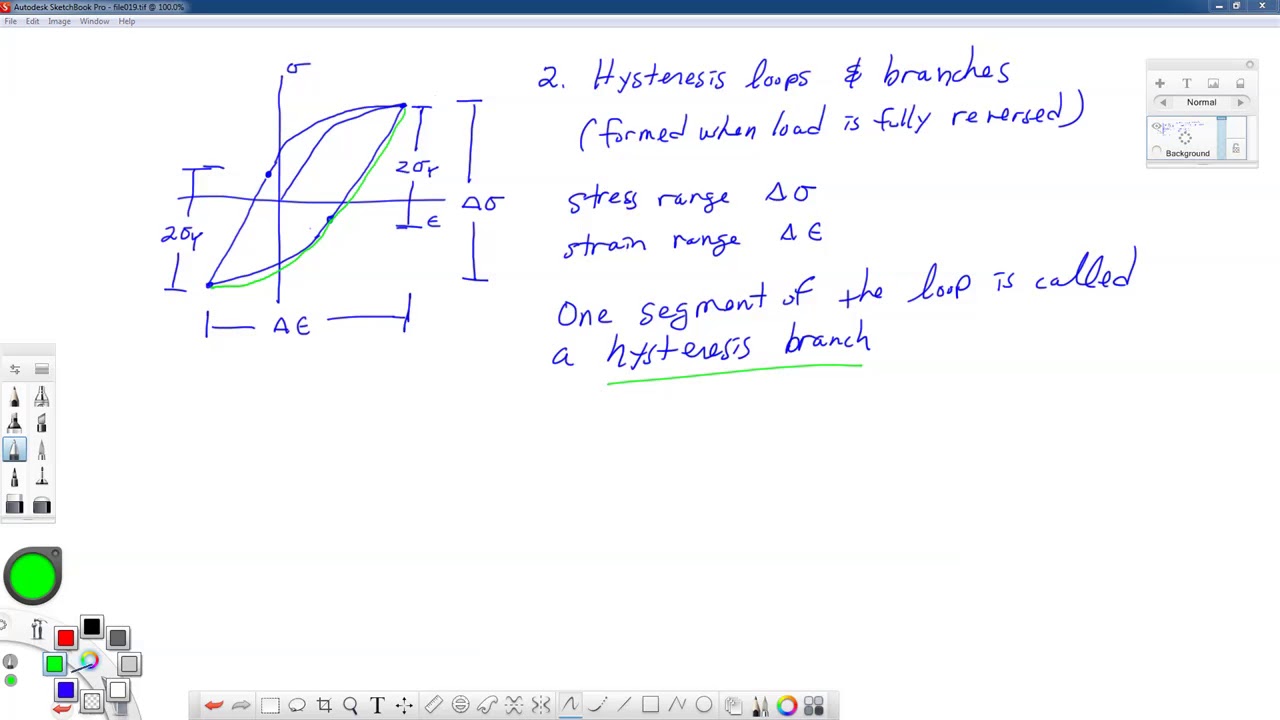 Autodesk SketchBook Pro - file019.tif @ 100.0%
File Edit Image Window Help
σ
2. Hysteresis loops & branches
(formed when load is fully reversed)
2σY
ε
Δσ
2σY
Δε
stress range Δσ
strain range Δε
One segment of the loop is called
a hysteresis branch
Normal
Background
T
T